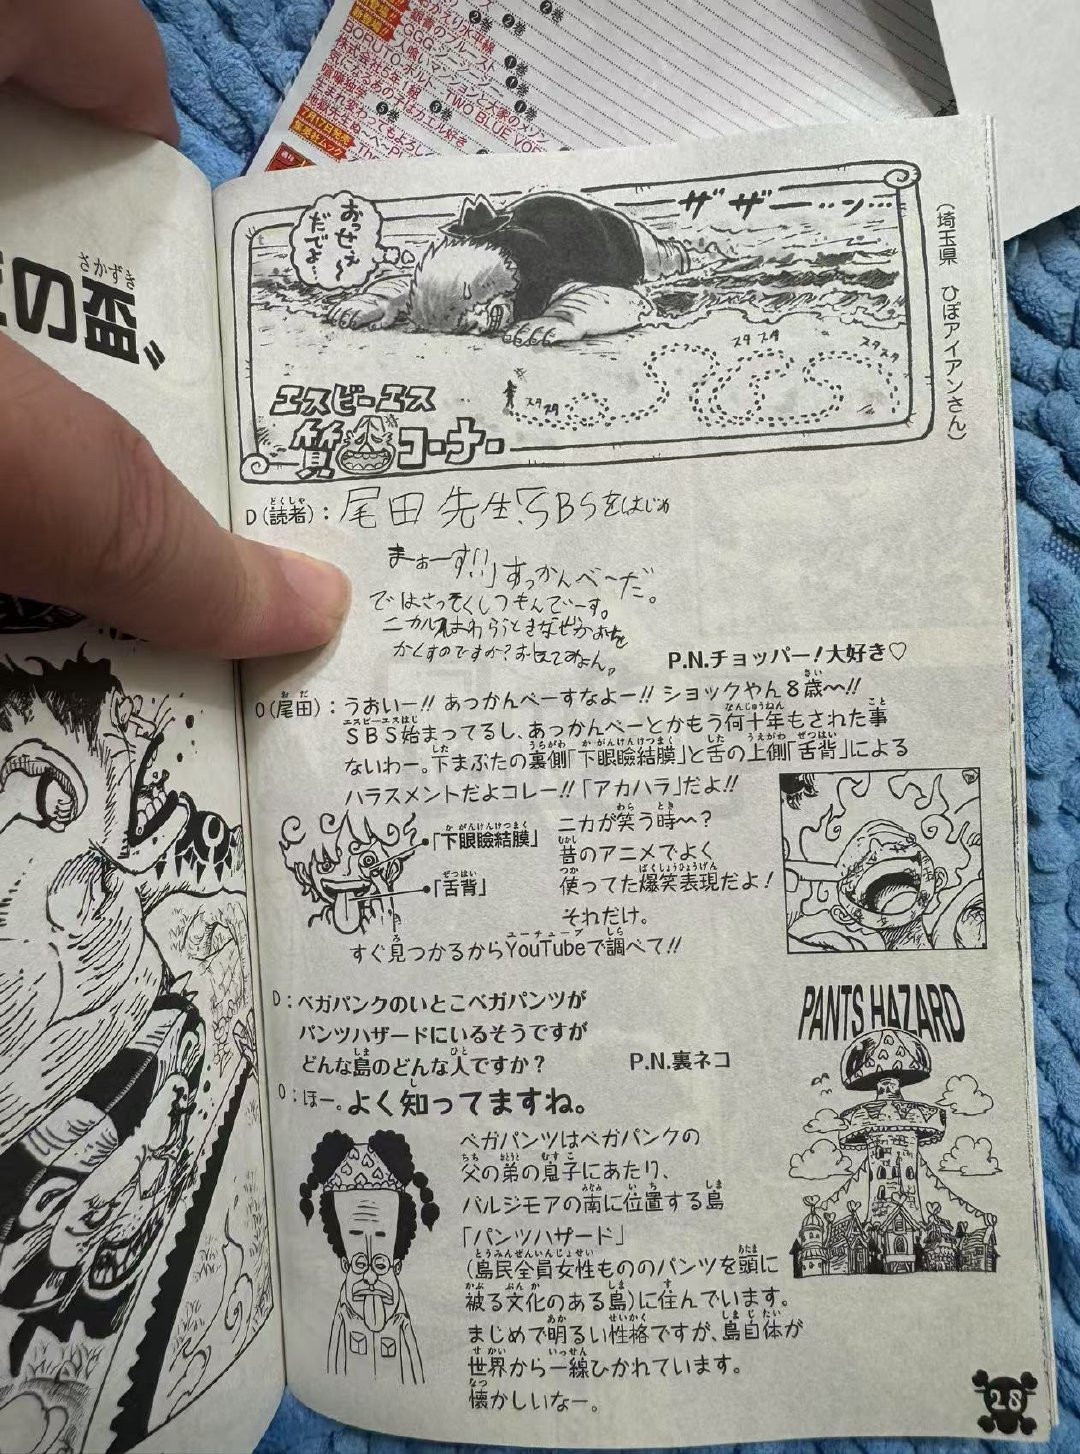 さかずき
の盃〟
ザザー…ン…
おっせェ〜
だでよ…
スタスタ
スタスタ
スタスタ
スタスタ
エスビーエス
質問コーナー
(埼玉県 ひぽアイアンさん)
D(読者):尾田先生!「SBSをはじめ
まぁーす!!」あっかんべ〜だ。
ではさっそくしつもんでーす。
ニカルフィはわらうときなぜかおを
かくすのですか?おしえてみょん。
P.N.チョッパー!大好き♡
O(尾田):うおい〜!! あっかんべーすなよー!! ショックやん8歳〜!!
SBS始まってるし、あっかんべーとかもう何十年もされた事
ないわー。下まぶたの裏側「下眼瞼結膜」と舌の上側「舌背」による
ハラスメントだよコレー!!「アカハラ」だよ!!
「下眼瞼結膜」
「舌背」
ニカが笑う時〜?
昔のアニメでよく
使ってた爆笑表現だよ!
それだけ。
すぐ見つかるからYouTubeで調べて!!
D:ベガパンクのいとこベガパンツが
パンツハザードにいるそうですが
どんな島のどんな人ですか?
P.N.裏ネコ
O:ほー。よく知ってますね。
PANTS HAZARD
ベガパンツはベガパンクの
父の弟の息子にあたり、
バルジモアの南に位置する島
「パンツハザード」
(島民全員女性もののパンツを頭に
被る文化のある島)に住んでいます。
まじめで明るい性格ですが、島自体が
世界から一線ひかれています。
懐かしいなー。
28